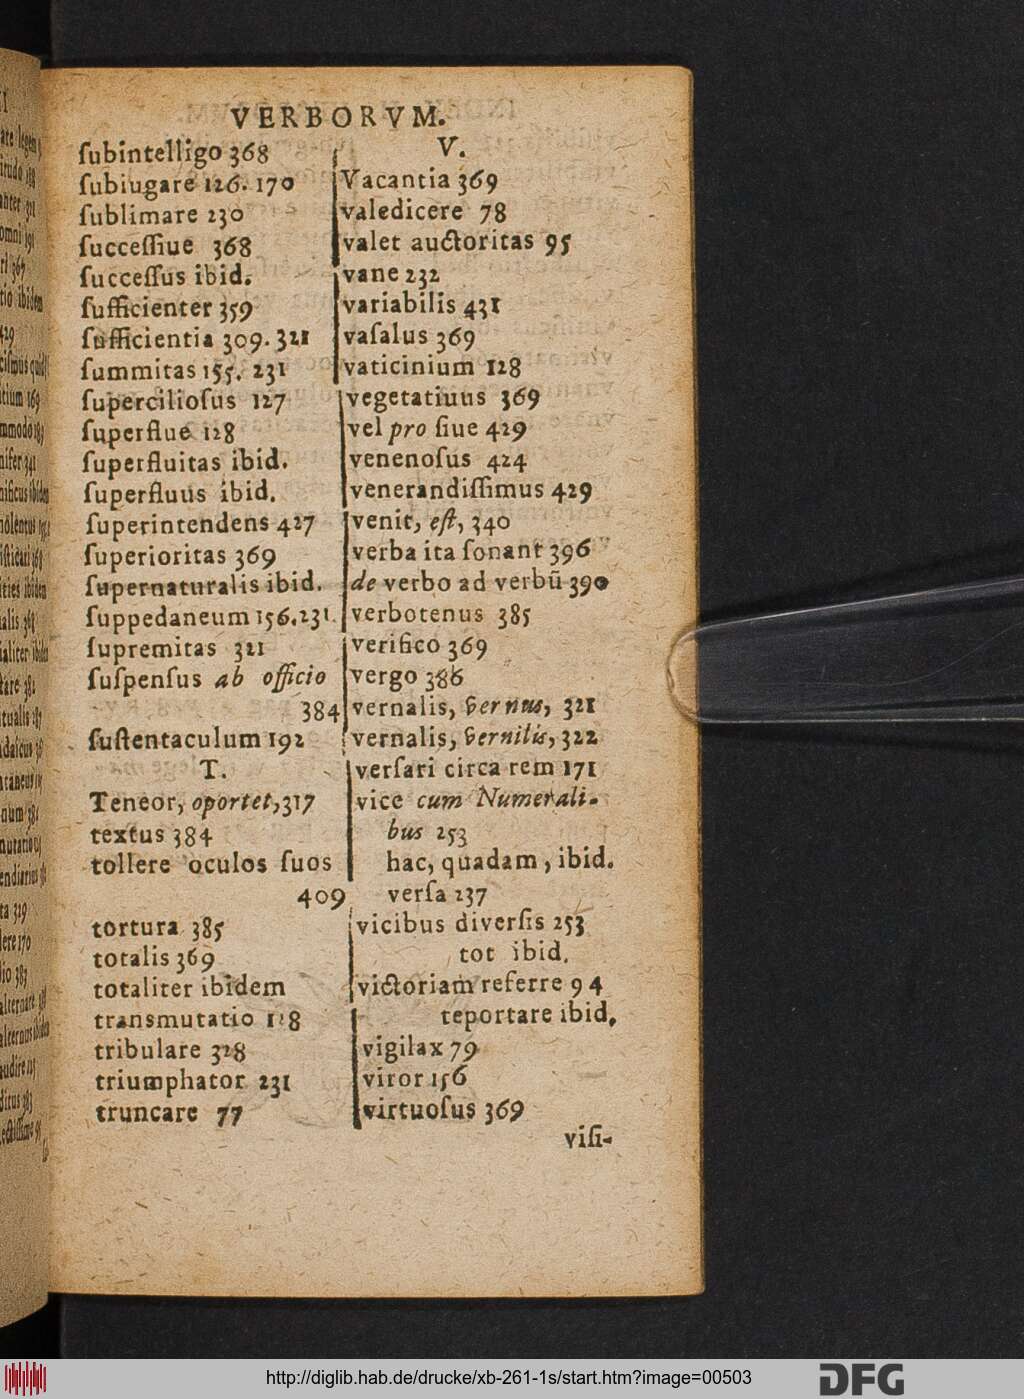 VERBORVM.
ſubintelligo 368
ſubiugare 126. 170
ſublimare 230
ſucceſſiue 368
ſucceſſus ibid.
ſufficienter 359
ſufficientia 309. 321
ſummitas 155. 231
ſupercilioſus 127
ſuperflue 128
ſuperfluitas ibid.
ſuperfluus ibid.
ſuperintendens 427
ſuperioritas 369
ſupernaturalis ibid.
ſuppedaneum 156. 231.
ſupremitas 321
ſuſpenſus ab officio
384
ſuſtentaculum 192
T.
Teneor, oportet, 317
textus 384
tollere oculos ſuos
409
tortura 385
totalis 369
totaliter ibidem
transmutatio 128
tribulare 328
triumphator 231
truncare 77
V.
Vacantia 369
valedicere 78
valet auctoritas 95
vane 232
variabilis 431
vaſalus 369
vaticinium 128
vegetatiuus 369
vel pro ſiue 429
venenoſus 424
venerandiſſimus 429
venit, eſt, 340
verba ita ſonant 396
de verbo ad verbũ 390
verbotenus 385
verifico 369
vergo 386
vernalis, vernus, 321
vernalis, vernilis, 322
verſari circa rem 171
vice cum Numerali-
bus 253
hac, quadam, ibid.
verſa 237
vicibus diverſis 253
tot ibid.
victoriam referre 94
reportare ibid.
vigilax 79
viror 156
virtuoſus 369
viſi-
http://diglib.hab.de/drucke/xb-261-1s/start.htm?image=00503
DFG